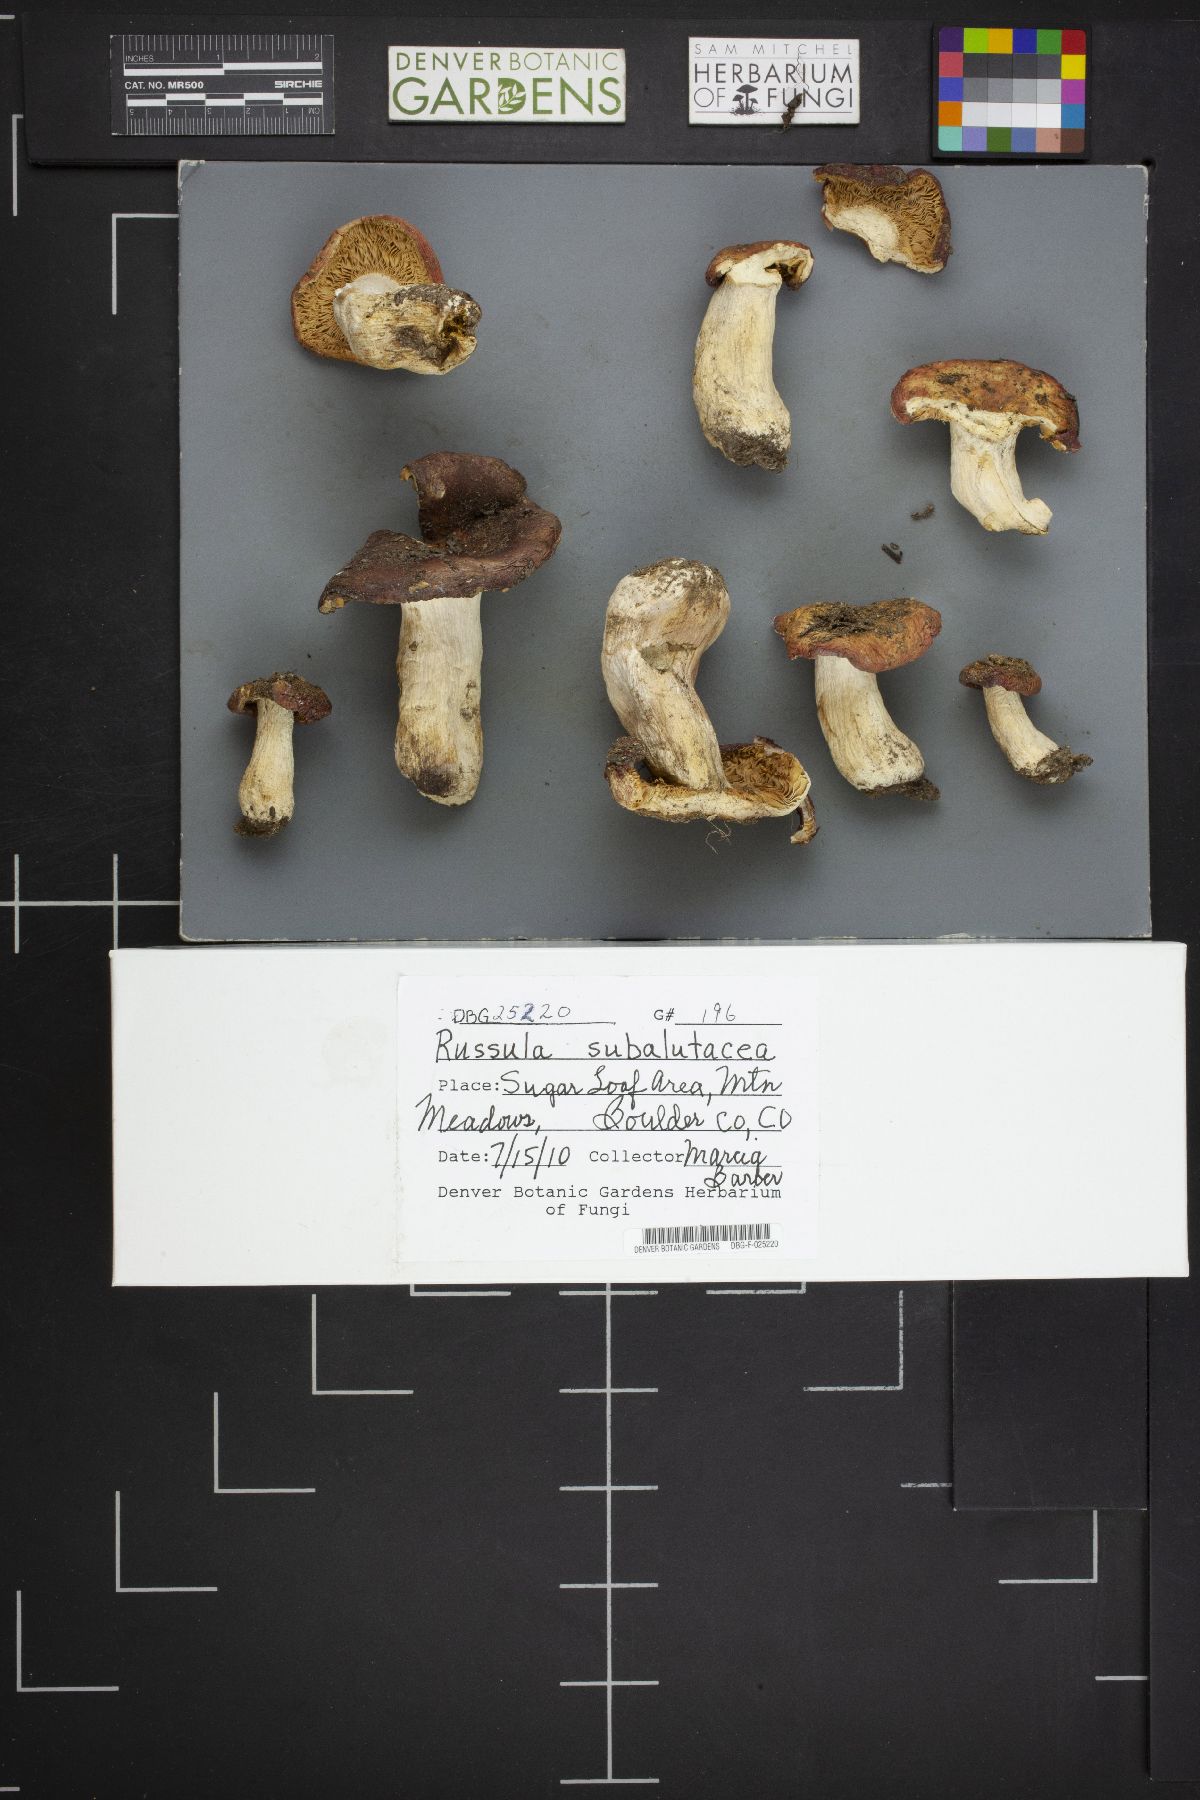 INCHES 1 2
CAT. NO. MR500 SIRCHIE
5 4 3 2 1 CM
DENVER BOTANIC
GARDENS
SAM MITCHEL
HERBARIUM
OF FUNGI
DBG 25220 G# 196
Russula subalutacea
Place: Sugar Loaf Area, Mtn
Meadows, Boulder Co, CO
Date: 7/15/10 Collector Marcia
Barber
Denver Botanic Gardens Herbarium
of Fungi
DENVER BOTANIC GARDENS DBG-F-025220